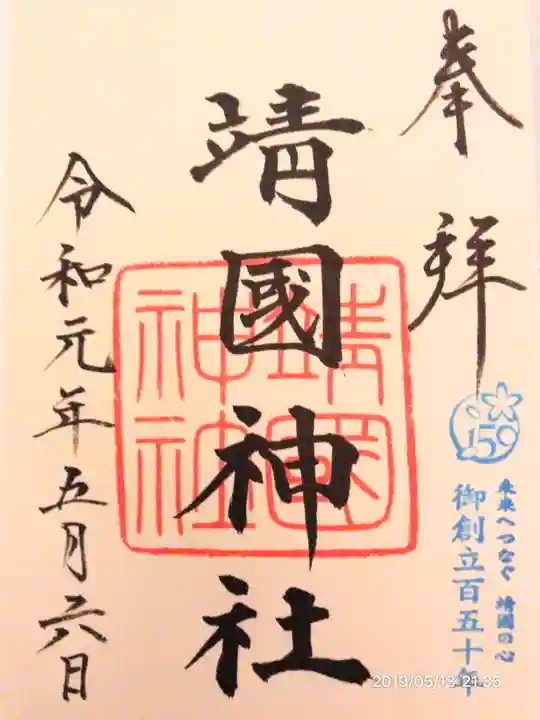 奉拝
150
未来へつなぐ 靖國の心
御創立百五十年
靖國神社
靖國神社
令和元年五月六日
2019/05/13 21:35